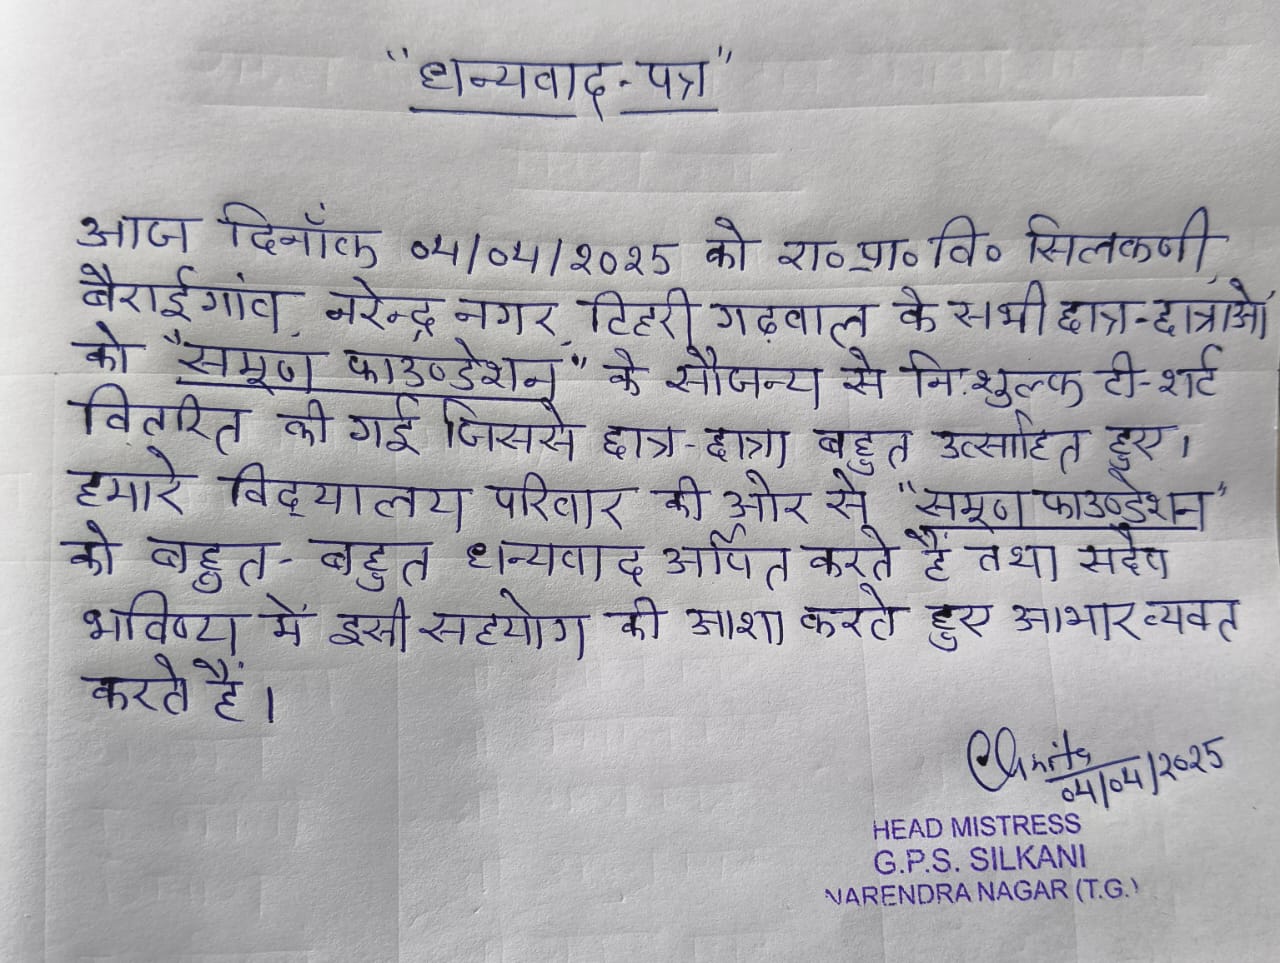 "धन्यवाद-पत्र"
आज दिनाँक 04/04/2025 को रा० प्रा० वि० सिलकणी,
बैराईगांव, नरेन्द्र नगर, टिहरी गढ़वाल के सभी छात्र-छात्राओं
को "समूण फाउण्डेशन" के सौजन्य से निःशुल्क टी-शर्ट
वितरित की गई जिससे छात्र-छात्रा बहुत उत्साहित हुए।
हमारे विद्यालय परिवार की ओर से "समूण फाउण्डेशन"
को बहुत-बहुत धन्यवाद अर्पित करते हैं तथा सदैव
भविष्य में इसी सहयोग की आशा करते हुए आभार व्यक्त
करते हैं।
04/04/2025
HEAD MISTRESS
G.P.S. SILKANI
NARENDRA NAGAR (T.G.)